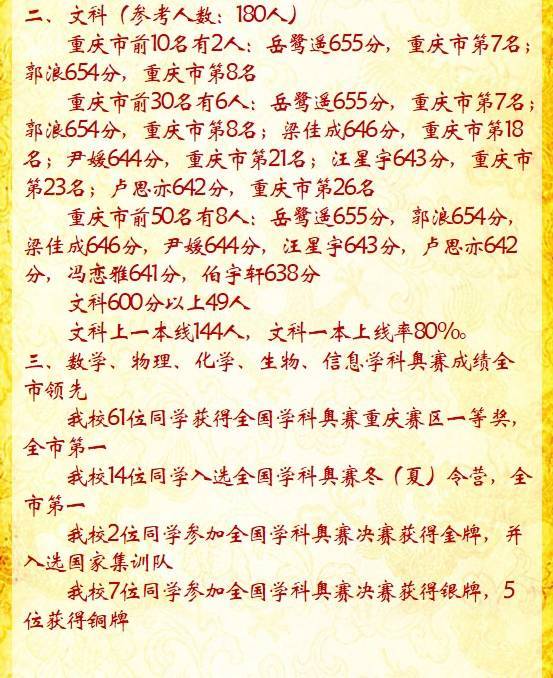 二、文科（参考人数：180人）
重庆市前10名有2人：岳鹭遥655分，重庆市第7名；
郭浪654分，重庆市第8名
重庆市前30名有6人：岳鹭遥655分，重庆市第7名；
郭浪654分，重庆市第8名；梁佳成646分，重庆市第18
名；尹媛644分，重庆市第21名；汪星宇643分，重庆市
第23名；卢思亦642分，重庆市第26名
重庆市前50名有8人：岳鹭遥655分，郭浪654分，
梁佳成646分，尹媛644分，汪星宇643分，卢思亦642
分，冯恋雅641分，伯宇轩638分
文科600分以上49人
文科上一本线144人，文科一本上线率80%。
三、数学、物理、化学、生物、信息学科奥赛成绩全
市领先
我校61位同学获得全国学科奥赛重庆赛区一等奖，
全市第一
我校14位同学入选全国学科奥赛冬（夏）令营，全
市第一
我校2位同学参加全国学科奥赛决赛获得金牌，并
入选国家集训队
我校7位同学参加全国学科奥赛决赛获得银牌，5
位获得铜牌